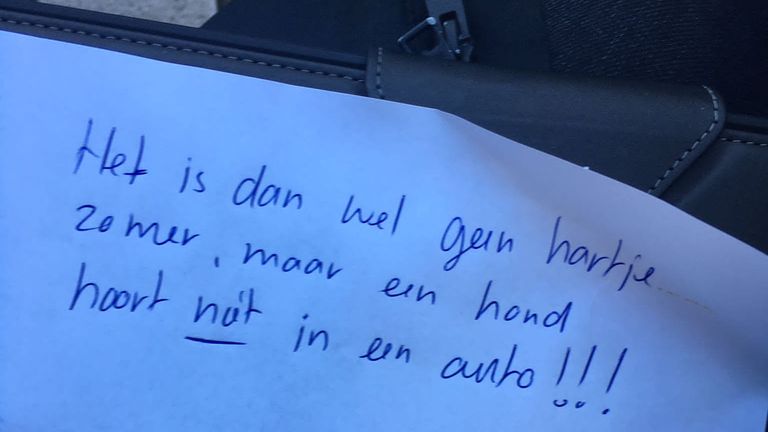 Het is dan wel geen hartje
zomer, maar een hond
hoort níet in een auto!!!